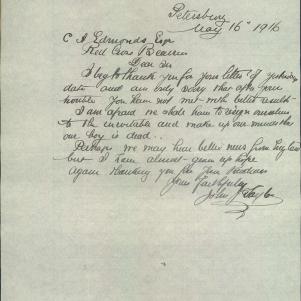 Petersburg
May 16th 1916
C A Edmonds Esq
Red Cross Bureau
Dear Sir
I beg to thank you for your letter of yesterdays
date and am only sorry that after your
trouble you have not met with better result
I am afraid we shall have to resign ourselves
to the inevitable and make up our minds that
our boy is dead.
Perhaps we may hear better news from England
but I have almost given up hope
Again thanking you for your kindness
Yours faithfully
John J Taylor